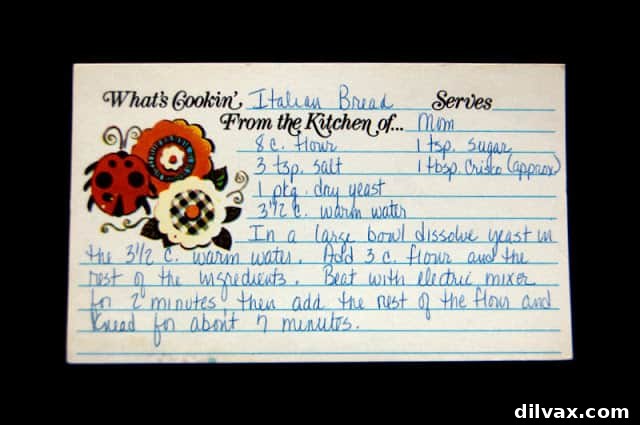 What's Cookin' Italian Bread Serves
From the Kitchen of... Mom
8 c. flour 1 tsp. sugar
3 tsp. salt 1 tbsp. Crisco (approx)
1 pkg. dry yeast
3 1/2 c. warm water
In a large bowl dissolve yeast in
the 3 1/2 c. warm water. Add 3 c. flour and the
rest of the ingredients. Beat with electric mixer
for 2 minutes, then add the rest of the flour and
Knead for about 7 minutes.
dilvax.com